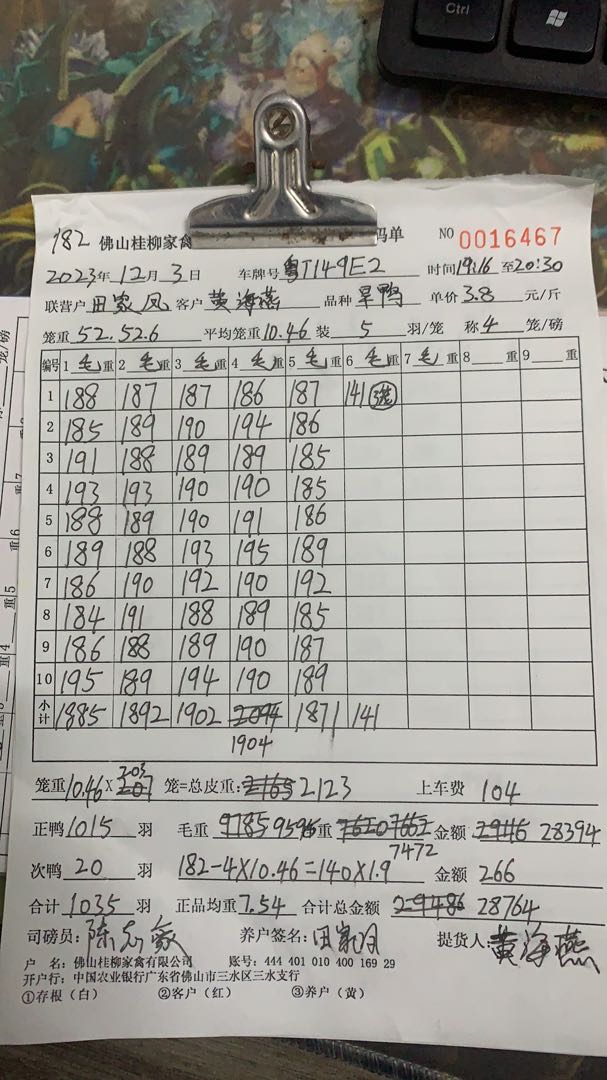 Ctrl
182 佛山桂柳家禽 码单 NO 0016467
2023年12月3日 车牌号 粤T149E2 时间19:16至20:30
联营户 田家凤 客户 黄海燕 品种 旱鸭 单价 3.8 元/斤
笼重 52.52.6 平均笼重 10.46 装 5 羽/笼 称 4 笼/磅
编号 1 毛 重 2 毛 重 3 毛 重 4 毛 重 5 毛 重 6 毛 重 7 毛 重 8 重 9 重
1 188 187 187 186 187 141
2 185 189 190 194 186
3 191 188 189 189 185
4 193 193 190 190 185
5 188 189 190 191 186
6 189 188 193 195 189
7 186 190 192 190 192
8 184 191 188 189 185
9 186 188 189 190 187
10 195 189 194 190 189
小计 1885 1892 1902 2094 1871 141
1904
203
笼重 10.46 X 207 笼=总皮重: 2165 2123 上车费 104
正鸭 1015 羽 毛重 9785 9596 重 7620 7662 金额 2946 28394
7472
次鸭 20 羽 182-4X10.46=140X1.9 金额 266
合计 1035 羽 正品均重 7.54 合计总金额 29486 28764
司磅员: 陈 家 养户签名: 田家 提货人: 黄海燕
户 名: 佛山桂柳家禽有限公司 账号: 444 401 010 400 169 29
开户行: 中国农业银行广东省佛山市三水区三水支行
①存根（白） ②客户（红） ③养户（黄）